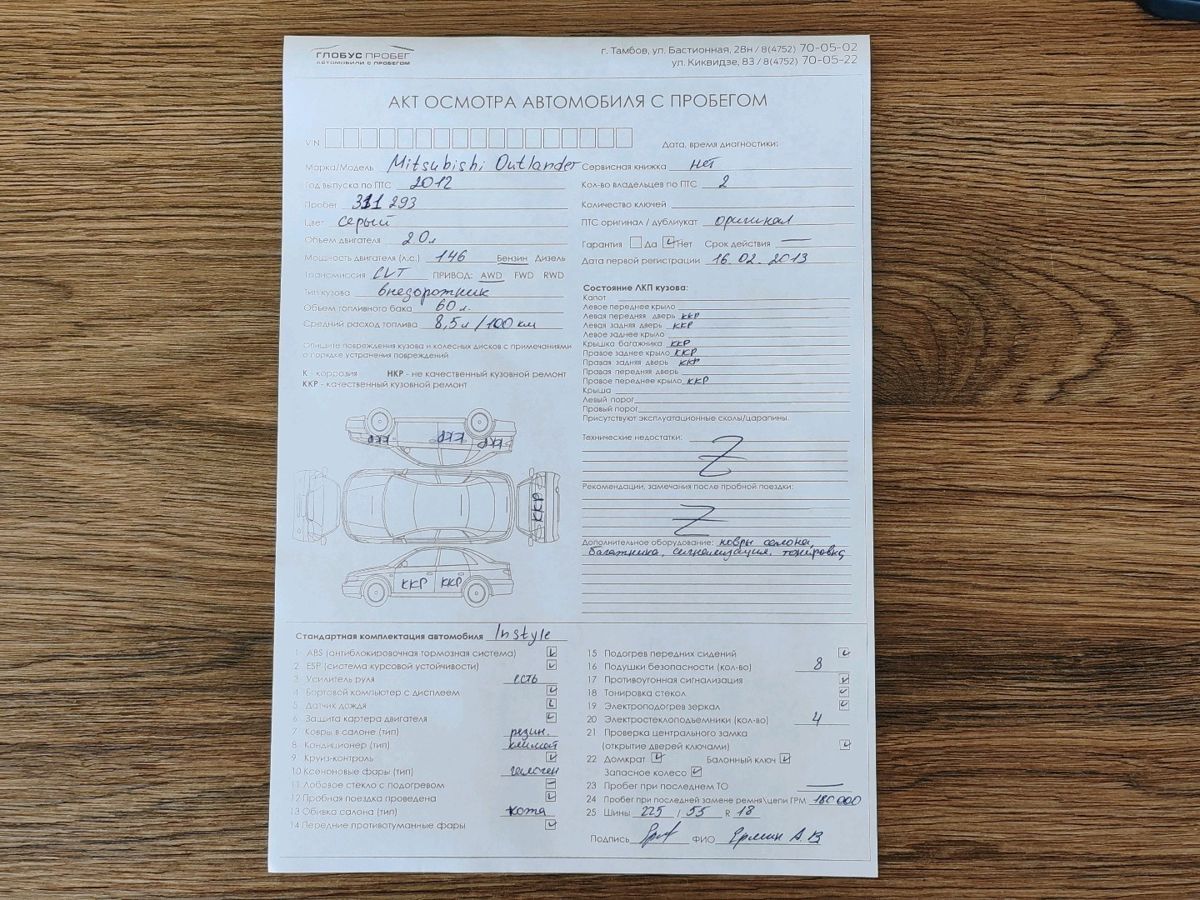 ГЛОБУС ПРОБЕГ
АВТОМОБИЛИ С ПРОБЕГОМ
г. Тамбов, ул. Бастионная, 28н / 8(4752) 70-05-02
ул. Киквидзе, 83 / 8(4752) 70-05-22
АКТ ОСМОТРА АВТОМОБИЛЯ С ПРОБЕГОМ
VIN
Марка/Модель Mitsubishi Outlander
Год выпуска по ПТС 2012
Пробег 311 293
Цвет серый
Объем двигателя 2.0л
Мощность двигателя (л.с.) 146 Бензин Дизель
Трансмиссия CVT ПРИВОД: AWD FWD RWD
Тип кузова внедорожник
Объем топливного бака 60 л.
Средний расход топлива 8,5л /100 км
Опишите повреждения кузова и колесных дисков с примечаниями
о порядке устранения повреждений
К - коррозия НКР - не качественный кузовной ремонт
ККР - качественный кузовной ремонт
ККР ККР ККР
ККР
ККР ККР
Дата, время диагностики:
Сервисная книжка нет
Кол-во владельцев по ПТС 2
Количество ключей
ПТС оригинал / дубликат оригинал
Гарантия Да Нет Срок действия —
Дата первой регистрации 16.02.2013
Состояние ЛКП кузова:
Капот
Левое переднее крыло
Левая передняя дверь ККР
Левая задняя дверь ККР
Левое заднее крыло
Крышка багажника ККР
Правое заднее крыло ККР
Правая задняя дверь ККР
Правая передняя дверь
Правое переднее крыло ККР
Крыша
Левый порог
Правый порог
Присутствуют эксплуатационные сколы/царапины.
Технические недостатки:
Рекомендации, замечания после пробной поездки:
Дополнительное оборудование: ковры салона,
багажника, сигнализация, тонировка
Стандартная комплектация автомобиля Instyle
1 ABS (антиблокировочная тормозная система)
2 ESP (система курсовой устойчивости)
3 Усилитель руля есть
4 Бортовой компьютер с дисплеем
5 Датчик дождя
6 Защита картера двигателя
7 Ковры в салоне (тип) резин.
8 Кондиционер (тип) климат
9 Круиз-контроль
10 Ксеноновые фары (тип) галоген
11 Лобовое стекло с подогревом
12 Пробная поездка проведена
13 Обивка салона (тип) кожа
14 Передние противотуманные фары
15 Подогрев передних сидений
16 Подушки безопасности (кол-во) 8
17 Противоугонная сигнализация
18 Тонировка стекол
19 Электроподогрев зеркал
20 Электростеклоподъемники (кол-во) 4
21 Проверка центрального замка
(открытие дверей ключами)
22 Домкрат Балонный ключ
Запасное колесо
23 Пробег при последнем ТО —
24 Пробег при последней замене ремня\цепи ГРМ 180 000
25 Шины 225 / 55 R 18
Подпись ФИО Ермин А.В